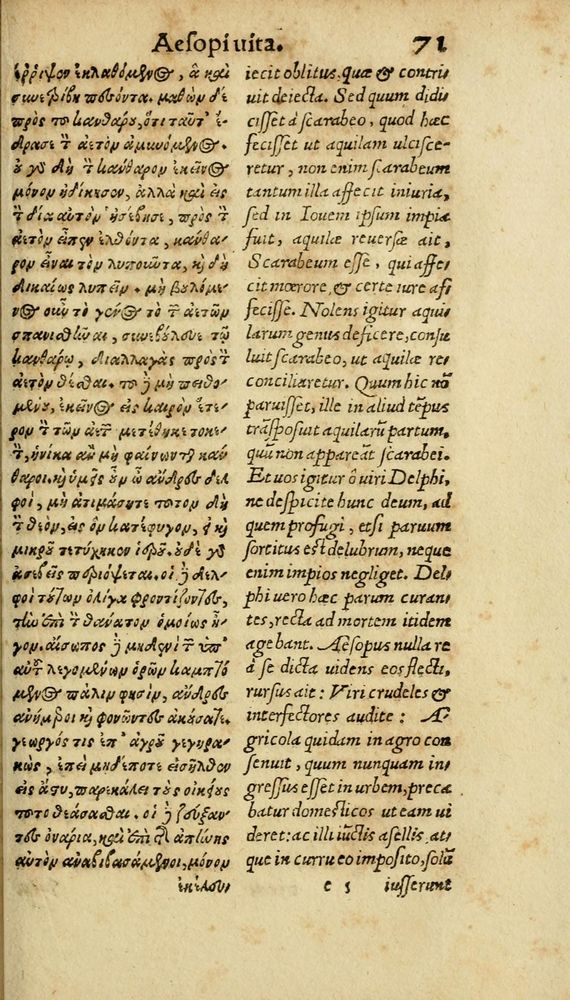 Aesopi uita. 71
ἔρριψεν ἐκλαθόμενος, ἃ καὶ
συνετρίβη πεσόντα. μαθὼν δὲ
πρὸς τοῦ κανθάρου, ὅτι ταῦτ' ἔ-
δρασε τὸν ἀετὸν ἀμυνόμενος.
οὐ γὰρ δὴ τὸν κάνθαρον ἐκεῖνος
μόνον ἠδίκησεν, ἀλλὰ καὶ εἰς
τὸν δία αὐτὸν ἠσέβησε, πρὸς τὸν
ἀετὸν εἶπεν ἐλθόντα, κάνθα-
ρον εἶναι τὸν λυποῦντα, καὶ δὴ
δικαίως λυπεῖν. μὴ βουλόμε-
νος οὖν τὸ γένος τὸ τῶν ἀετῶν
σπανισθῆναι, συνεβούλευε τῷ
κανθάρῳ, διαλλαγὰς πρὸς τὸν
ἀετὸν θέσθαι. τοῦ δὲ μὴ πειθο-
μένου, ἐκεῖνος εἰς καιρὸν ἕτε-
ρον τὸν τῶν ἀετῶν μετέθηκε τοκε-
τὸν, ἡνίκα ἂν μὴ φαίνωνται κάν
θαροι. καὶ ὑμεῖς οὖν ὦ ἄνδρες δελ
φοὶ, μὴ ἀτιμάσητε τοῦτον δὴ
τὸν θεὸν, εἰς ὃν κατέφυγον, εἰ καὶ
μικροῦ τετύχηκεν ἱεροῦ. οὐδὲ γὰρ
ἀσεβεῖς περιόψεται. οἱ δὲ δελ-
φοὶ τούτων ὀλίγα φροντίζοντες,
τὴν ἐπὶ τὸν θάνατον ὁμοίως ἦ-
γον. αἴσωπος δὲ μηδενὶ τῶν ὑπ'
αὐτοῦ λεγομένων ὁρῶν καμπτο
μένους πάλιν φησὶν, ἄνδρες
ἀνήμεροι καὶ φονῶντες ἀκούσατε.
γεωργός τις ἐπ' ἀγροῦ γεγηρα-
κὼς, ἐπεὶ μηδέποτε εἰσῆλθεν
εἰς ἄστυ, παρεκάλει τοὺς οἰκείους
τοῦτο θεάσασθαι. οἱ δὲ ζεύξαν-
τες ὀνάρια, καὶ ἐπὶ τῆς ἀπήνης
αὐτὸν ἀναβιβασάμενοι, μόνον
ἐκέλευ-
iecit oblitus, quæ & contri-
uit deiecta. Sed quum didi-
cisset à scarabeo, quod hæc
fecisset ut aquilam ulcisce-
retur, non enim scarabeum
tantum illa affecit iniuria,
sed in Iouem ipsum impia
fuit, aquilæ reuersæ ait,
Scarabeum esse, qui affe-
cit mœrore, & certe iure affe
cisse. Nolens igitur aqui-
larum genus deficere, consu
luit scarabeo, ut aquilæ re-
conciliaretur. Quum hic nõ
paruisset, ille in aliud tẽpus
trãsposuit aquilarũ partum,
quũ non appareãt scarabei.
Et uos igitur ô uiri Delphi,
ne despicite hunc deum, ad
quem profugi, etsi paruum
sortitus est delubrum, neque
enim impios negliget. Del-
phi uero hæc parum curan-
tes, recta ad mortem itidem
agebant. Aesopus nulla re
à se dicta uidens eos flecti,
rursus ait: Viri crudeles &
interfectores audite: A-
gricola quidam in agro con
senuit, quum nunquam in-
gressus esset in urbem, preca
batur domesticos ut eam ui
deret: ac illi iũctis asellis, at-
que in curru eo imposito, solũ
e 5 iusserunt